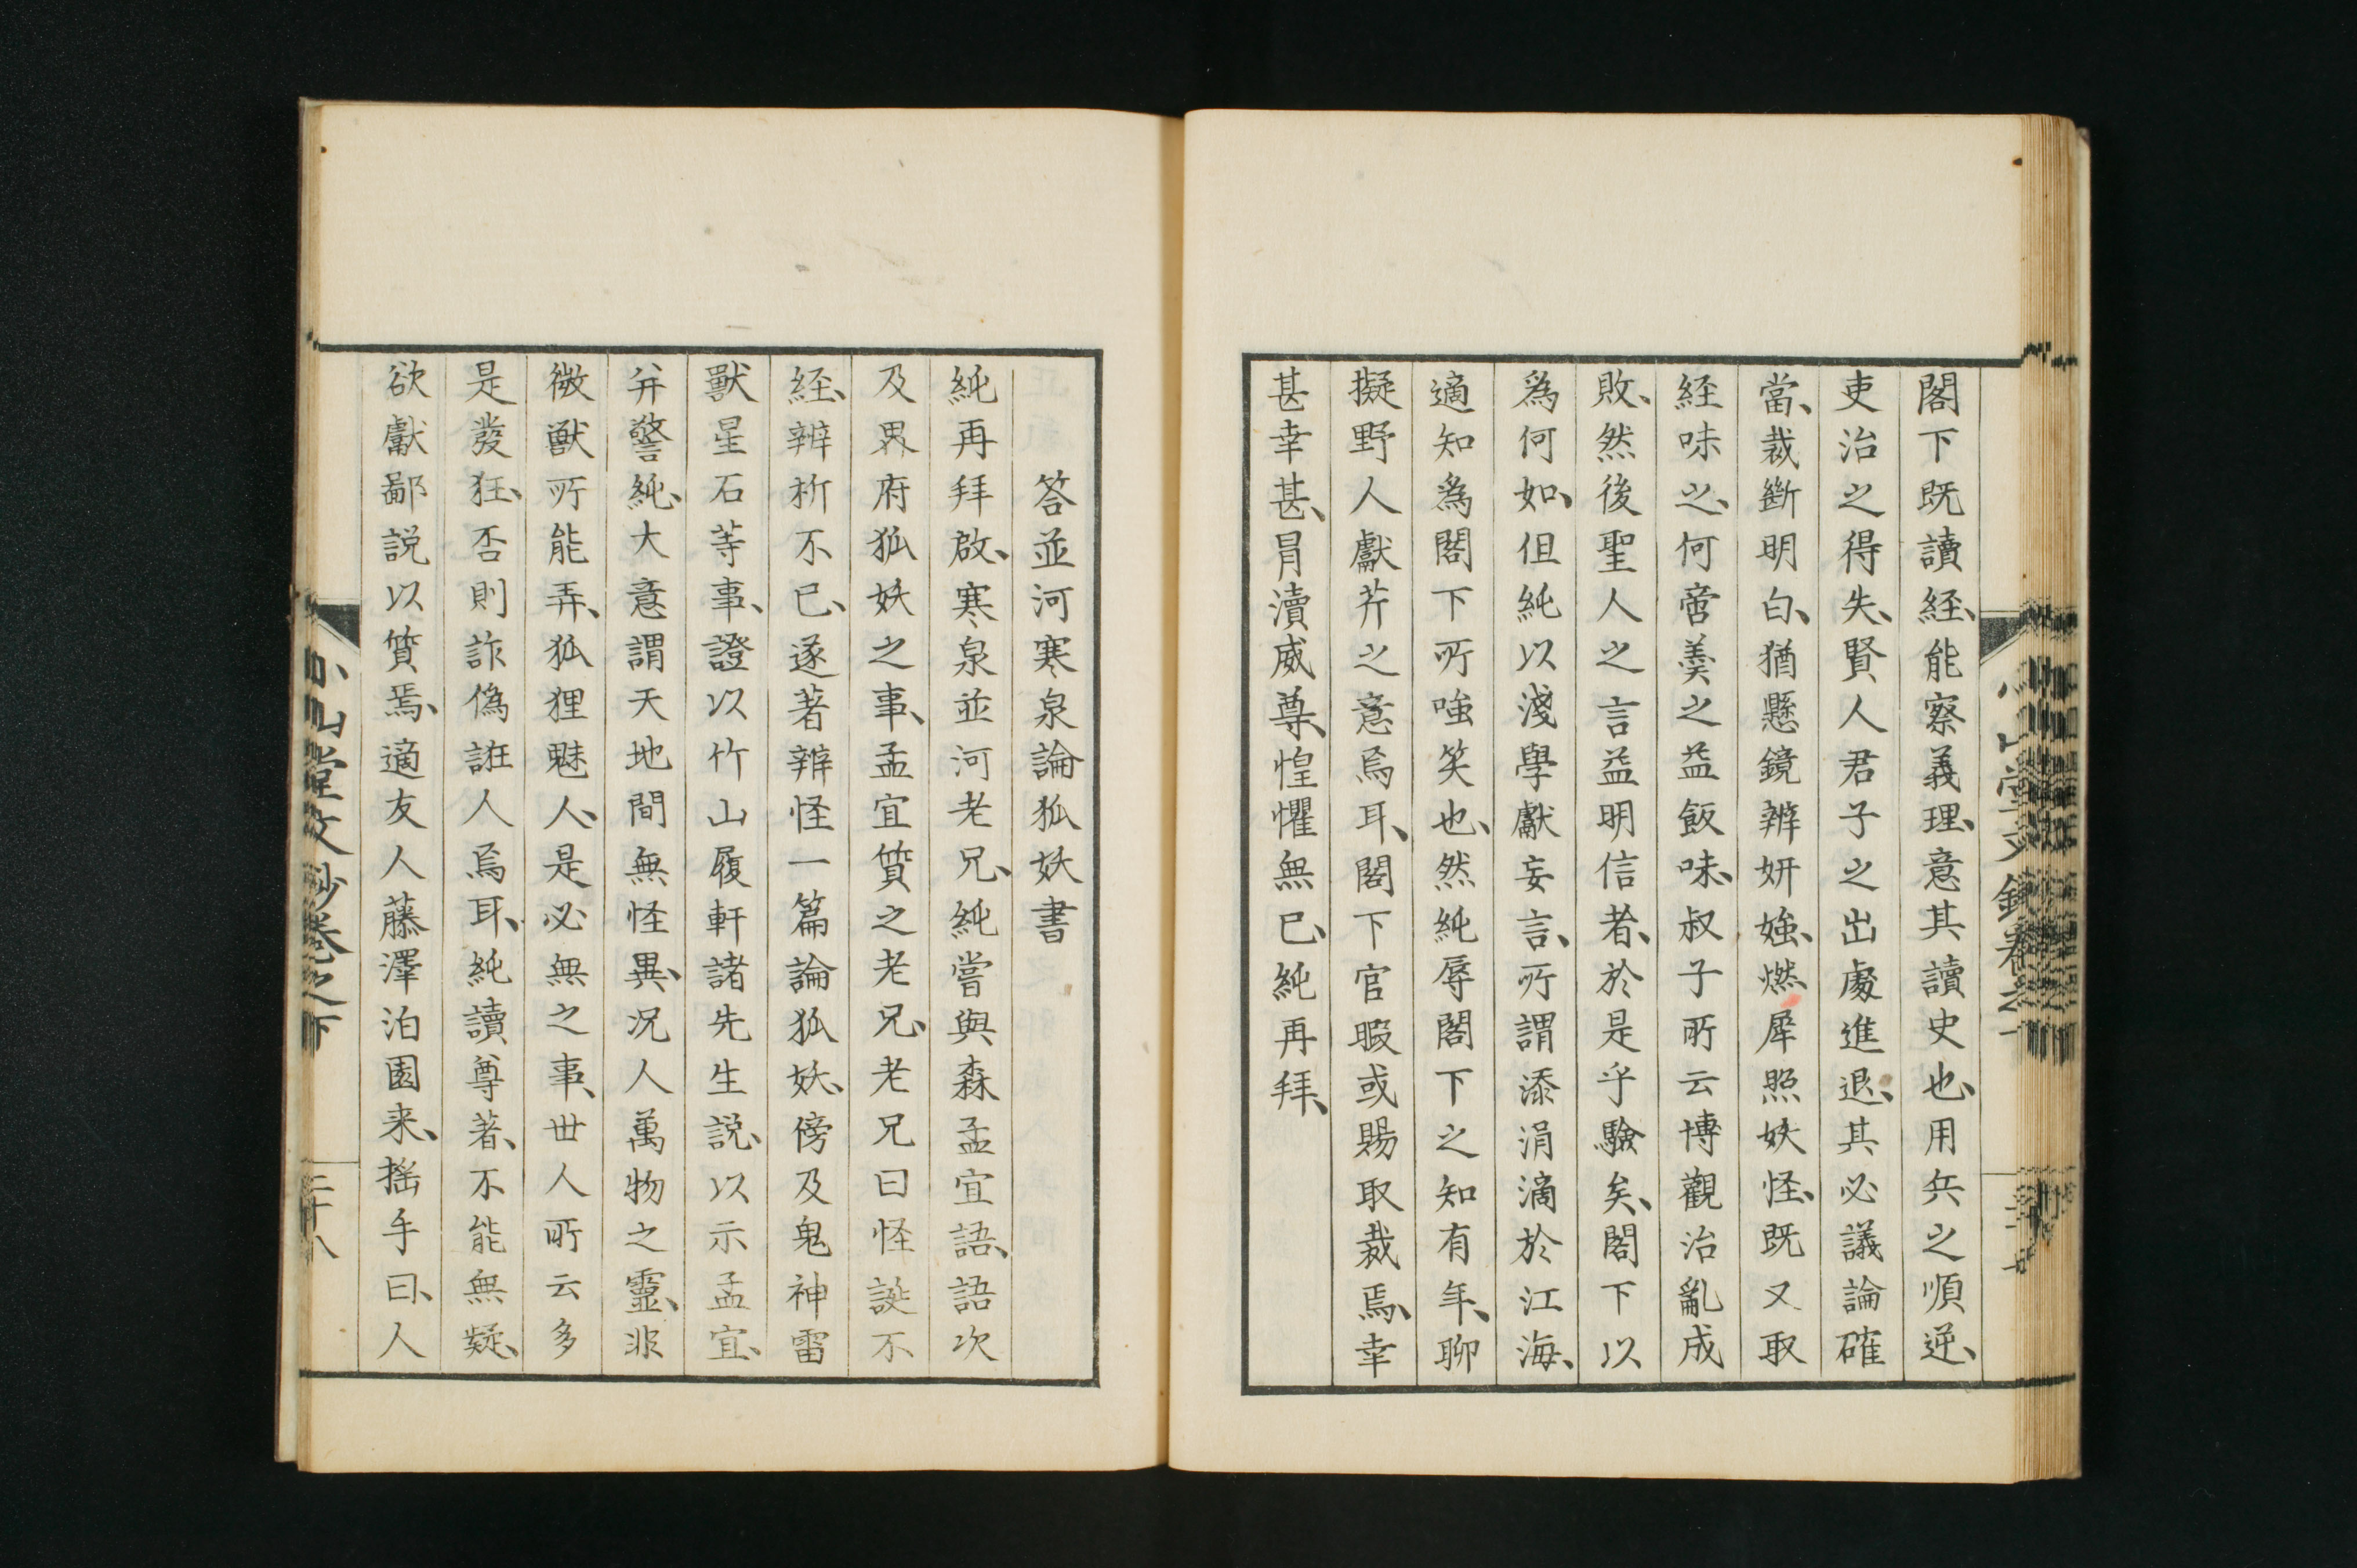 閣下既讀経、能察義理、意其讀史也、用兵之順逆、
吏治之得失、賢人君子之出處進退、其必議論確
當、裁斷明白、猶懸鏡辨妍媸、燃犀照妖怪、既又取
経味之、何啻羹之益飯味、叔子所云博觀治亂成
敗、然後聖人之言益明信者、於是乎驗矣、閣下以
為何如、但純以淺學獻妄言、所謂添涓滴於江海、
適知為閣下所嗤笑也、然純辱閣下之知有年、聊
擬野人獻芹之意焉耳、閣下官暇或賜取裁焉、幸
甚幸甚、冒瀆威尊、惶懼無已、純再拜、
答並河寒泉論狐妖書
純再拜啟、寒泉並河老兄、純嘗與森孟宜語、語次
及界府狐妖之事、孟宜質之老兄、老兄曰怪誕不
経、辨析不已、遂著辨怪一篇論狐妖、傍及鬼神雷
獸星石等事、證以竹山履軒諸先生説、以示孟宜、
并警純、大意謂天地間無怪異、况人萬物之靈、非
微獣所能弄、狐狸魅人、是必無之事、世人所云多
是發狂、否則詐偽誑人焉耳、純讀尊著、不能無疑、
欲獻鄙説以質焉、適友人藤澤泊園来、揺手曰、人
小山堂文鈔卷之下
三十八